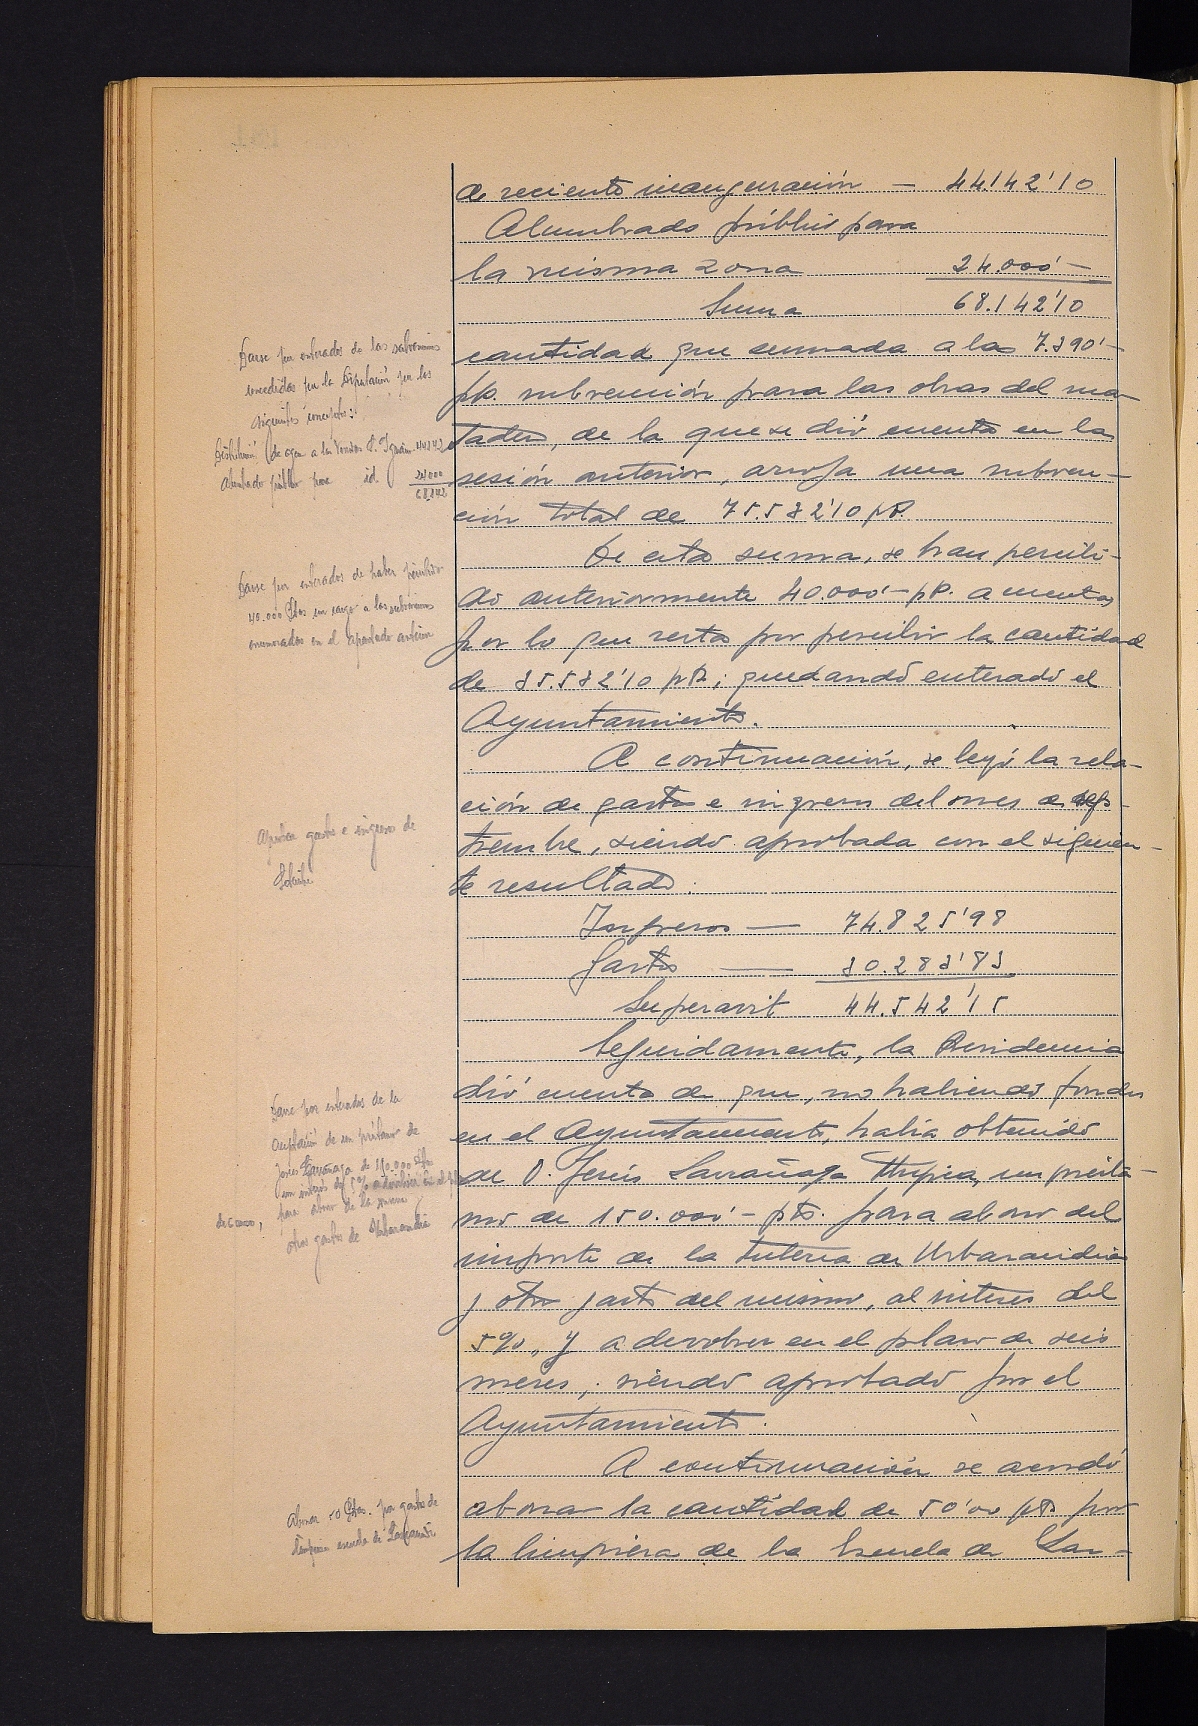 de reciente inauguración — 44.142'10
Alumbrado público para
la misma zona 24.000'—
Suma 68.142'10
cantidad que sumada a las 7.390'—
pts. subvención para las obras del ma-
tadero, de la que se dió cuenta en la
sesión anterior, arroja una subven-
ción total de 75.532'10 pts.
De esta suma, se han percibi-
do anteriormente 40.000'— pts. a cuenta,
por lo que resta por percibir la cantidad
de 35.532'10 pts; quedando enterado el
Ayuntamiento.
A continuación, se leyó la rela-
ción de gastos e ingresos del mes de sep-
tiembre, siendo aprobada con el siguien-
te resultado.
Ingresos — 74.825'98
Gastos — 30.283'83
Superavit 44.542'15
Seguidamente, la Presidencia
dió cuenta de que, no habiendo fondos
en el Ayuntamiento, había obtenido
de D. Jesús Larrañaga, un présta-
mo de 150.000'— pts. para abono del
importe de la tubería de Urbarandia
y otros gastos del mismo, al interes del
5%, y a devolver en el plazo de seis
meses; siendo aprobado por el
Ayuntamiento.
A continuación se acordó
abonar la cantidad de 50'00 pts. por
la limpieza de la Escuela de Lar-
Darse por enterados de las subvenciones
concedidas por la Diputación por los
siguientes conceptos:
Distribución de agua a la 44142
Alumbrado público para id 24000
68.142
Darse por enterados de haber percibido
40.000 Ptas con cargo a las subvenciones
enumeradas en el apartado anterior
Aprobar gastos e ingresos de
Darse por enterados de la
de un préstamo de
Larrañaga de 150.000 Ptas
con interés del 5% a devolver en el
para abono de la
otros gastos de Urbarandia
Abonar 50 Ptas. por gastos de
limpieza escuela de